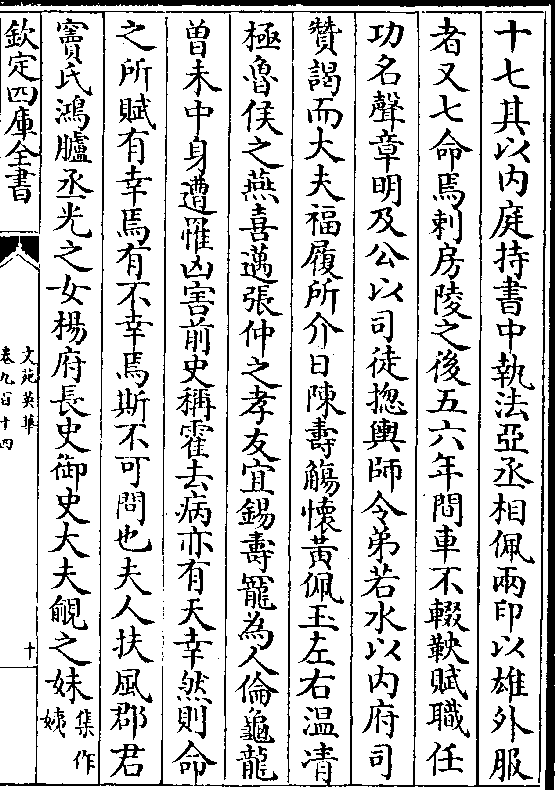 十七其以内庭持書中執法亞丞相佩兩印以雄外服
者又七命焉剌房陵之後五六年間車不輟鞅賦職任
功名聲章明及公以司徒揔輿師令弟若水以内府司
贊謁而大夫福履所介日陳壽觴懷黄佩玉左右温凊
極魯侯之燕喜邁張仲之孝友宜錫壽寵為人倫龜龍
曽未中身遭罹凶害前史稱霍去病亦有天幸然則命
之所賦有幸焉有不幸焉斯不可問也夫人扶風郡君
竇氏鴻臚丞光之女楊府長史御史大夫覦之妹集作姨
欽定四庫全書
文苑英華
卷九百十四
十